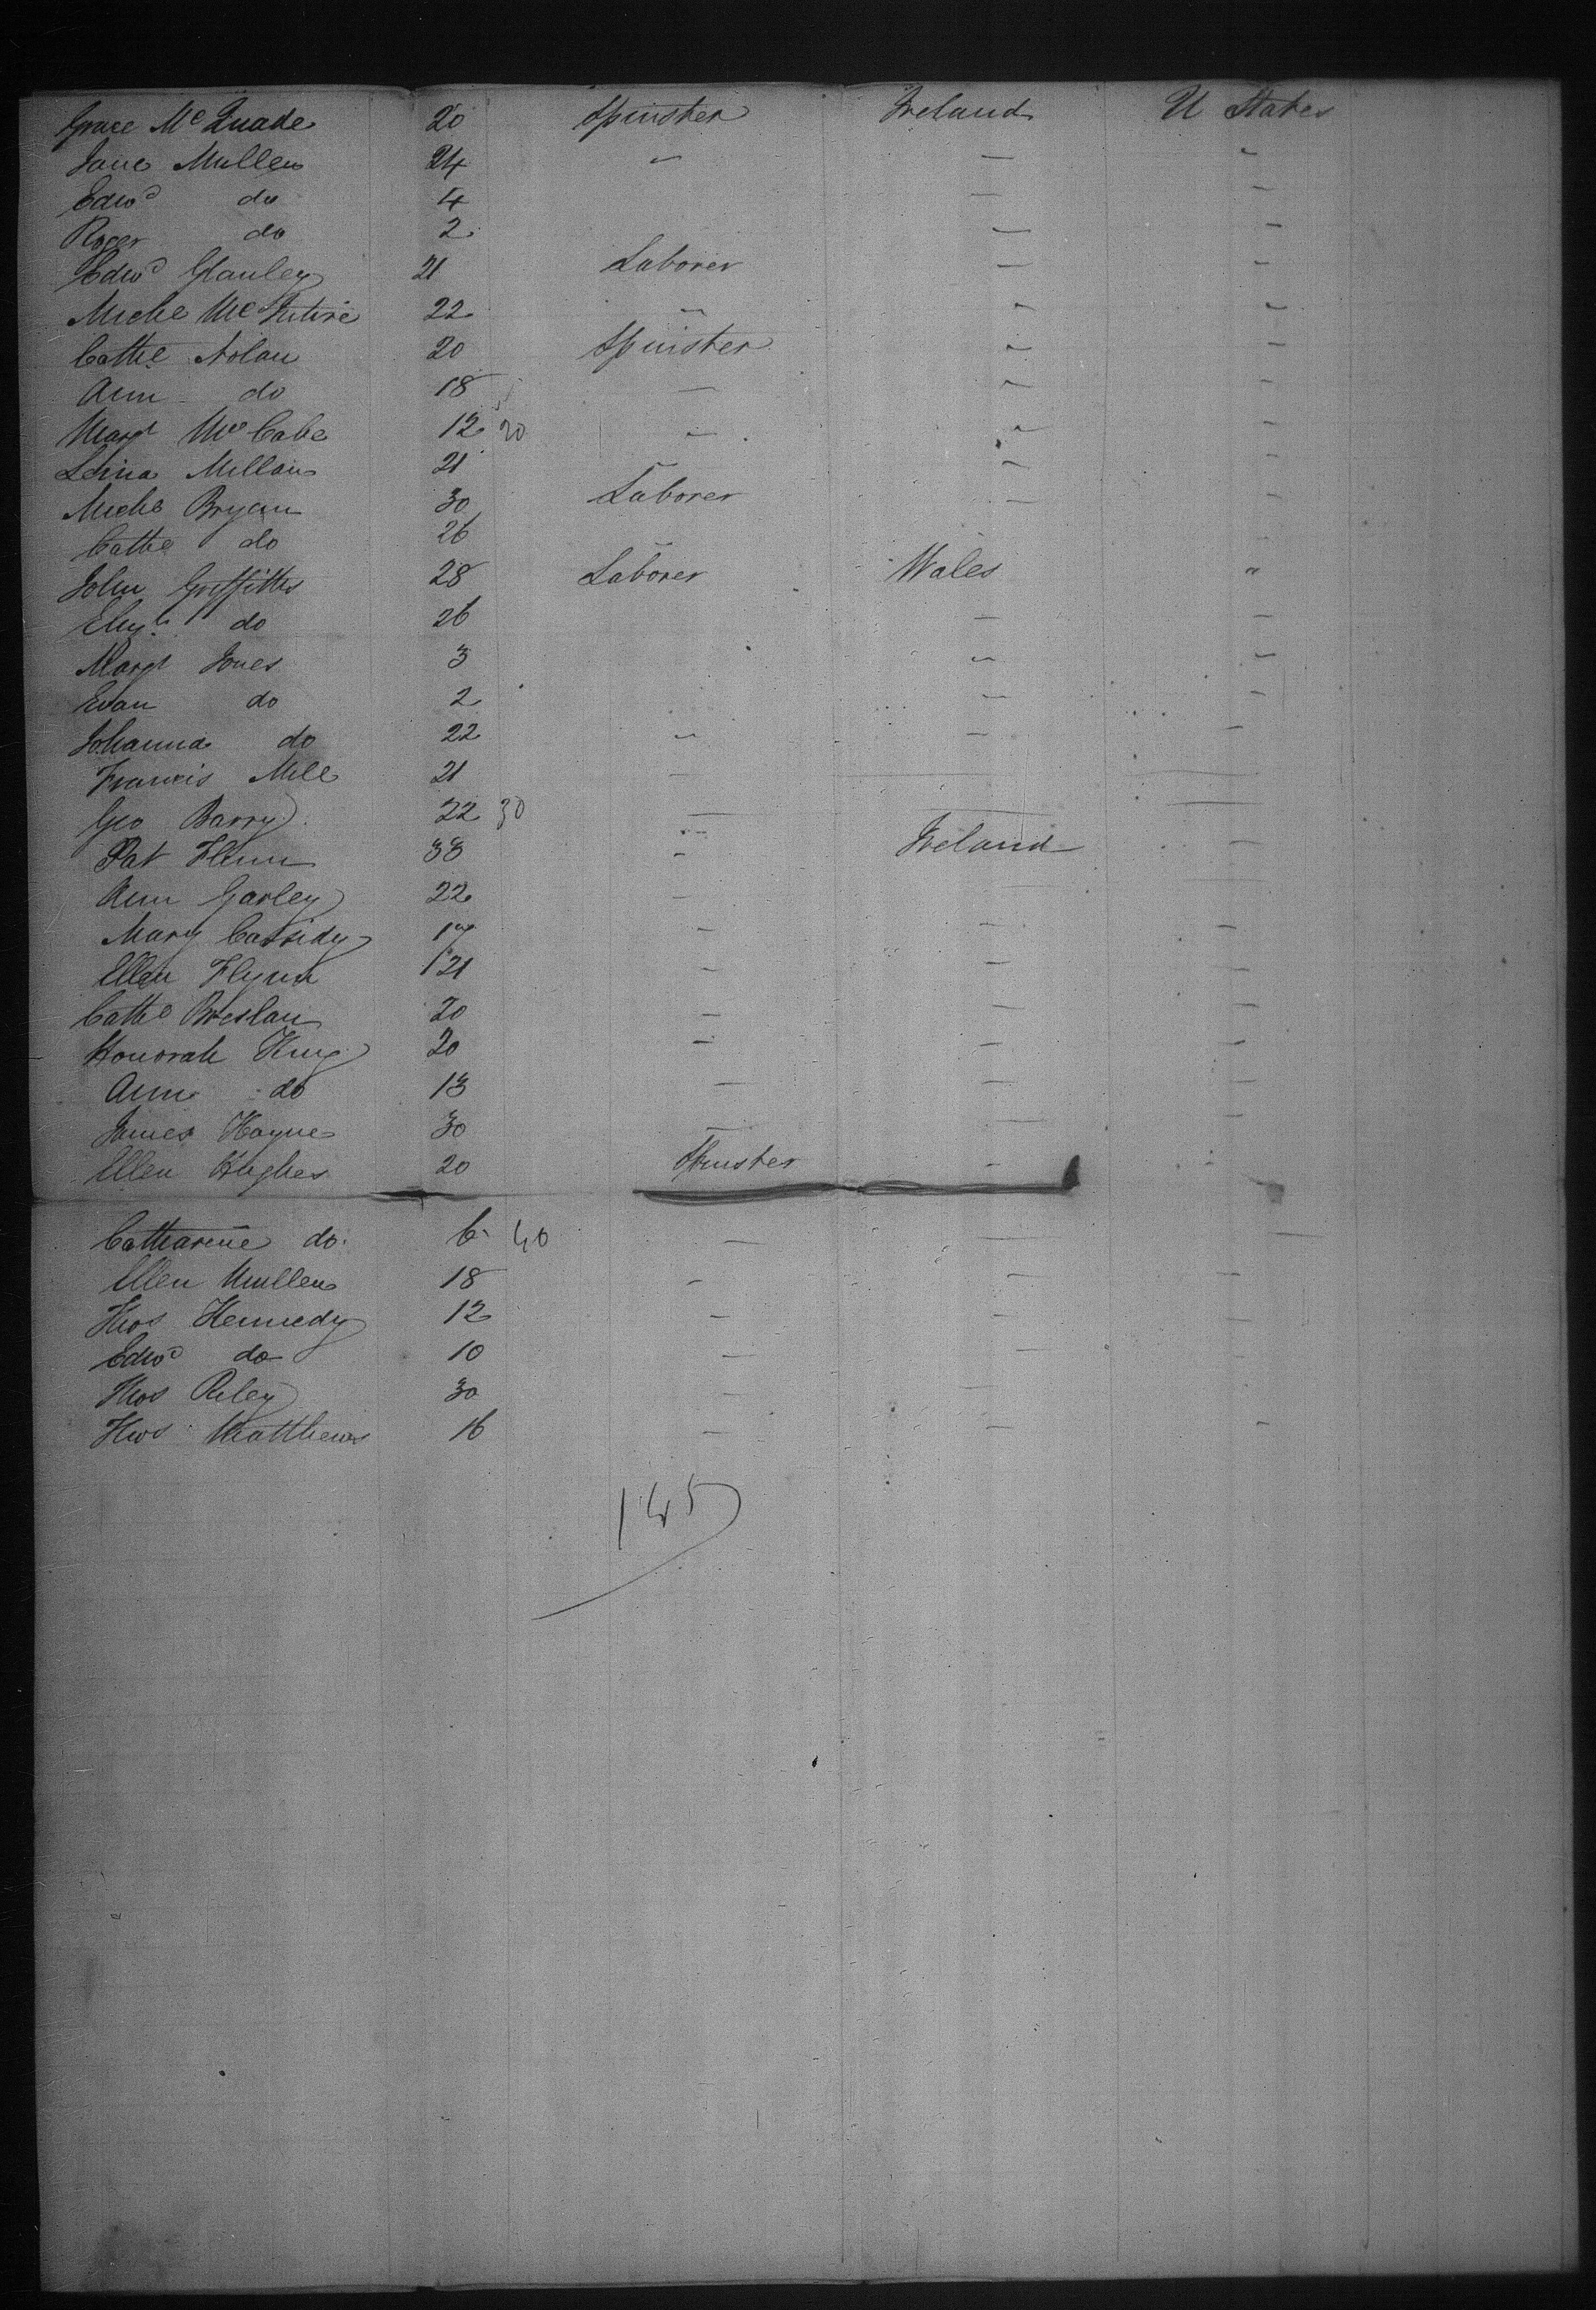 Grace McQuade 20 Spinster Ireland U States
Jane Mullen 24 " — "
Edwd do 4 — —
Roger do 2 — —
Edwd Ganley 21 Laborer — —
Michl McIntire 22 " " "
Cathe Nolan 20 Spinster " —
Ann do 18 — " —
Margt McCabe 12 20 " " —
21 — —
Michl Bryan 30 Laborer — —
Cathe do 26
John Griffiths 28 Laborer Wales "
Elizh do 26 — —
Margt Jones 3 " "
Evan do 2 — —
Johanna do 22 " — —
Francis Mill 21 — — —
Geo Barry 22 30 — — —
Pat Flinn 38 — Ireland —
Ann Garley 22 — — —
Mary Cassidy 17 — — —
Ellen Flynn 21 — — —
Cathe Breslan 20 — — —
Honorah King 20 — — —
Ann do 13 — — —
James Hayne 30 — — —
Ellen Hughes 20 Spinster — "
Catharine do 6 40 — — —
Ellen Mullen 18 — — —
Thos Kennedy 12 — — —
Edwd do 10 — — —
Thos Riley 30 — — —
Thos Matthews 16 — — —
145